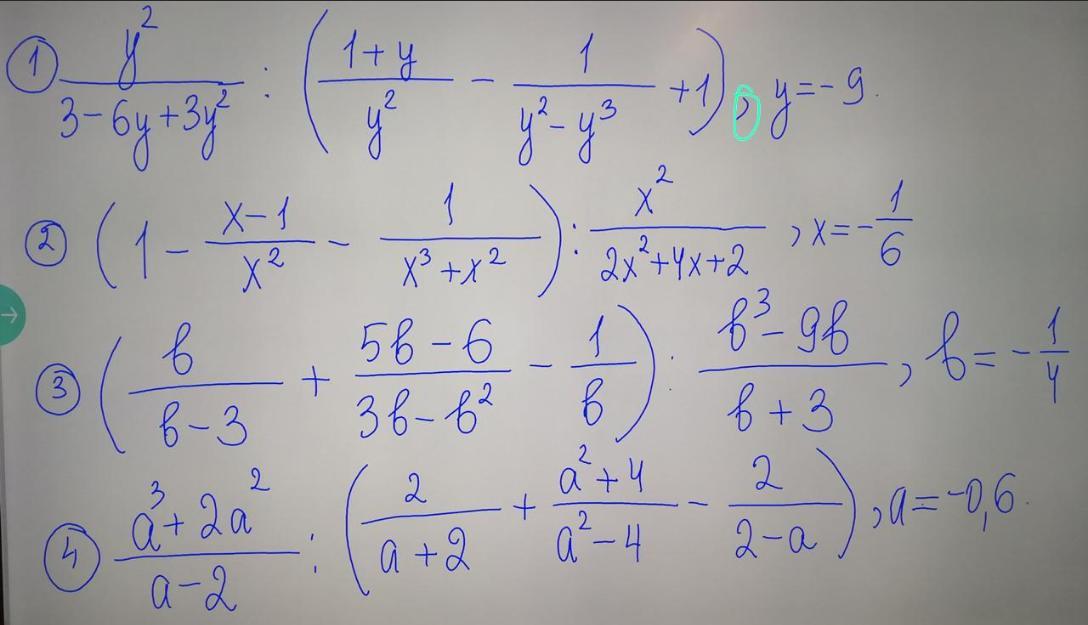 ① y²/(3-6y+3y²) : ((1+y)/y² - 1/(y²-y³) + 1), y=-9.
② (1 - (x-1)/x² - 1/(x³+x²)) : x²/(2x²+4x+2), x=-1/6
③ (b/(b-3) + (5b-6)/(3b-b²) - 1/b) : (b³-9b)/(b+3), b=-1/4
④ (a³+2a²)/(a-2) : (2/(a+2) + (a²+4)/(a²-4) - 2/(2-a)), a=-0,6.